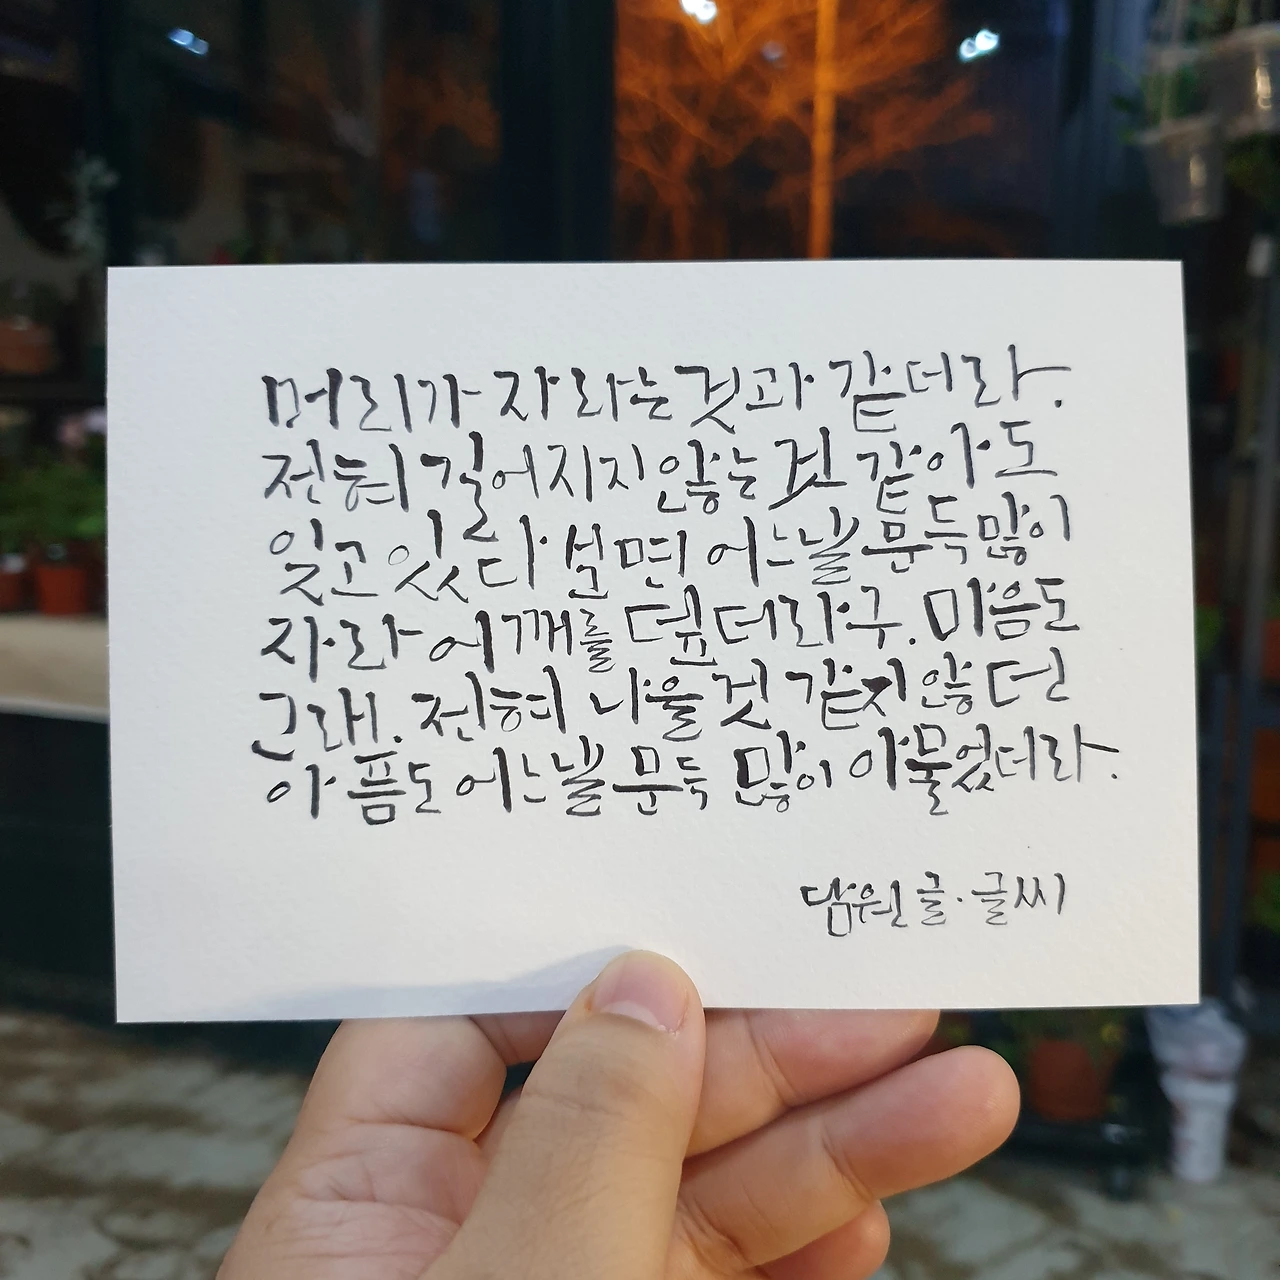 머리가 자라는 것과 같더라.
전혀 길어지지 않는 것 같아도
잊고 있다 보면 어느날 문득 많이
자라 어깨를 덮더라구. 마음도
그래. 전혀 나을 것 같지 않던
아픔도 어느날 문득 많이 아물었더라.
담원 글·글씨